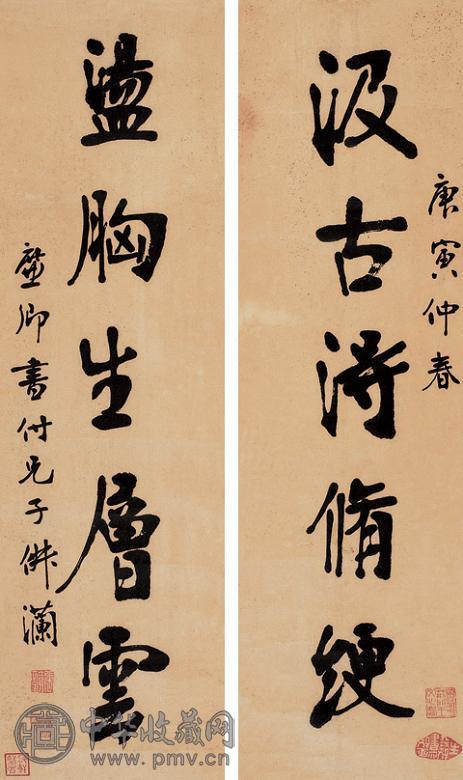 庚寅仲春
汲古得脩綆
盪胸生層雲
書付兄子佛瀾
中华收藏网
www.pmv.cn